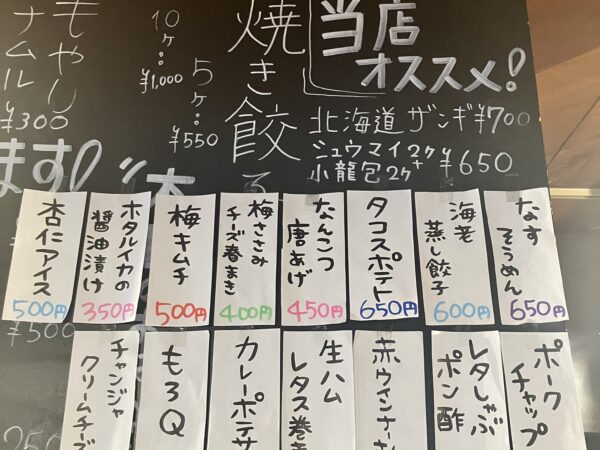 当店
オススメ!
北海道 ザンギ ¥700
シュウマイ2ケ
小龍包2ケ ¥650
焼き餃
10ケ:¥1,000
5ケ:¥550
もやし
ナムル
¥300
ます!
なす
そうめん
650円
海老
蒸し餃子
600円
タコスポテト
650円
なんこつ
唐あげ
450円
梅ささみ
チーズ春まき
400円
梅キムチ
500円
ホタルイカの
醤油漬け
350円
杏仁アイス
500円
¥500
ポーク
チャップ
レタしゃぶ
ポン酢
赤ウインナー
生ハム
レタス巻き
カレーポテサ
もろQ
チャンジャ
クリームチーズ
250